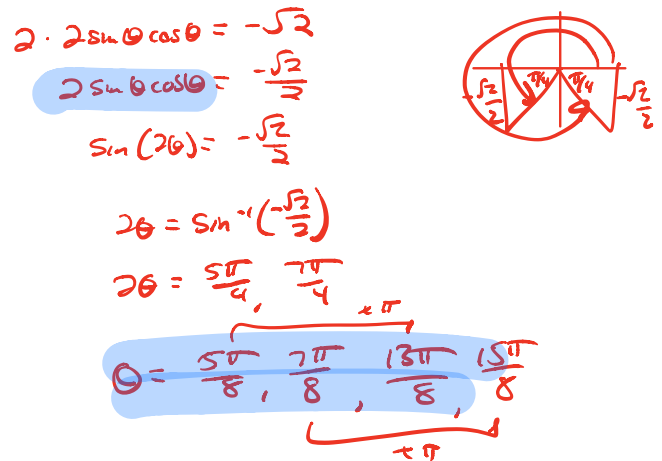 2 · 2sinθcosθ = -√2
2sinθcosθ = -√2/2
sin(2θ) = -√2/2
2θ = sin⁻¹(-√2/2)
2θ = 5π/4, 7π/4
+π
θ = 5π/8, 7π/8, 13π/8, 15π/8
+π
π/4 π/4
-√2/2 -√2/2